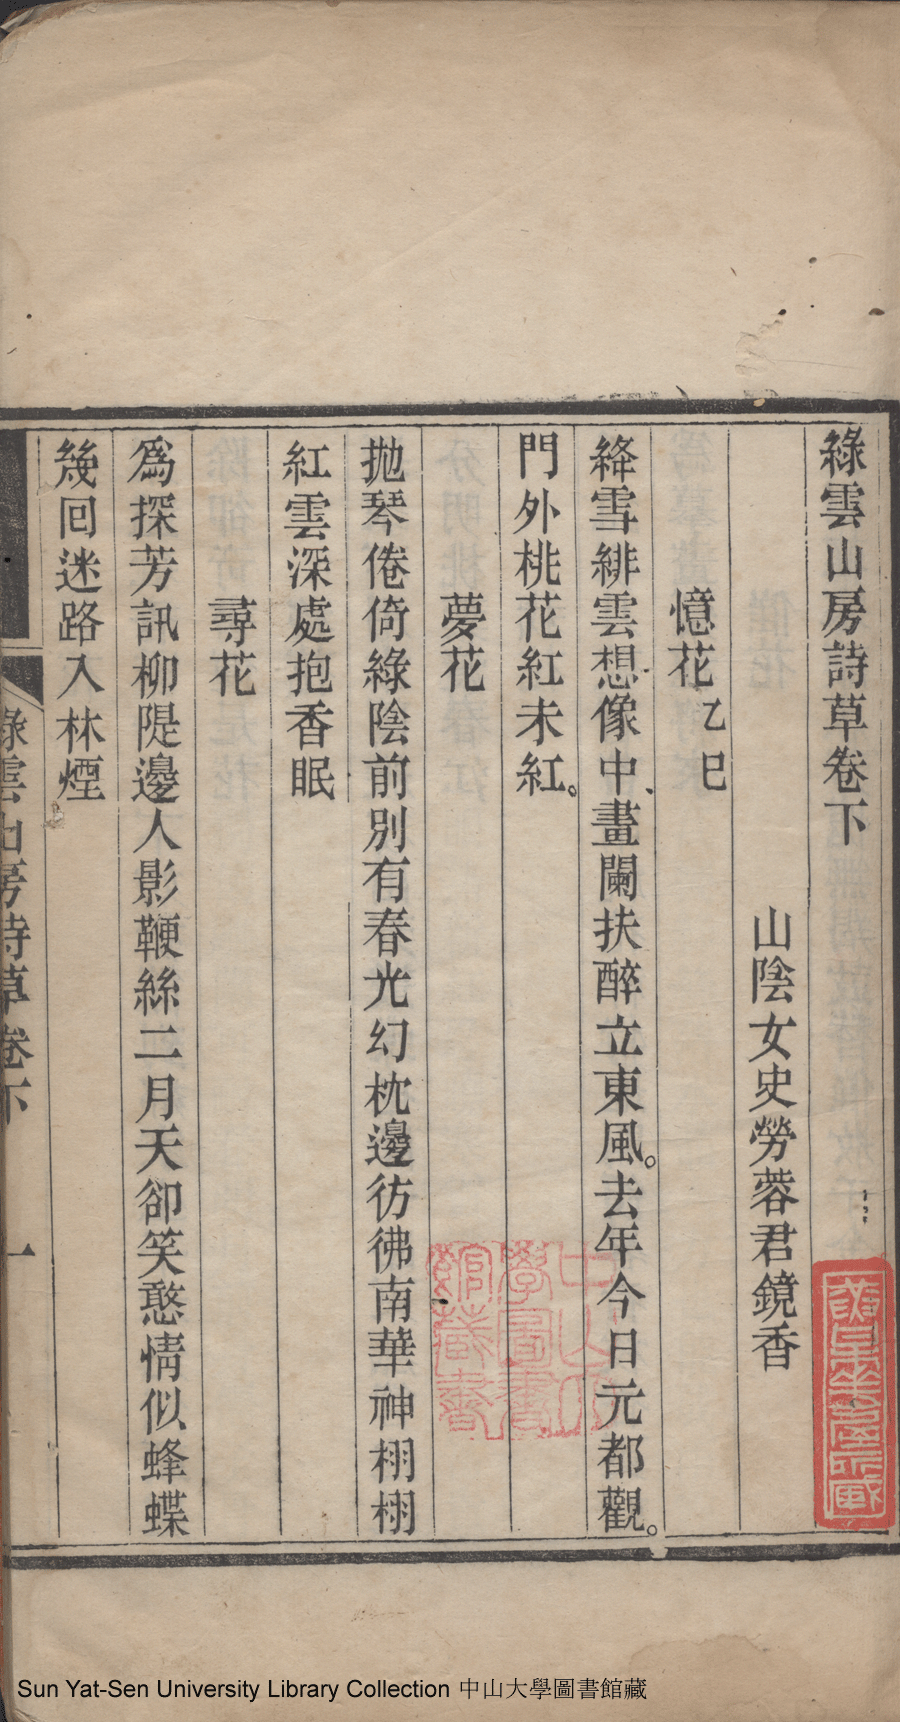 綠雲山房詩草卷下
山陰女史勞蓉君鏡香
憶花乙巳
絳雪緋雲想像中畫闌扶醉立東風。去年今日元都觀。
門外桃花紅未紅。
夢花
拋琴倦倚綠陰前別有春光幻枕邊彷彿南華神栩栩
紅雲深處抱香眠
尋花
為探芳訊柳隄邊人影鞭絲二月天卻笑憨情似蜂蝶
幾回迷路入林煙
綠雲山房詩草卷下
一
中山大
學圖書
館藏書
Sun Yat-Sen University Library Collection 中山大學圖書館藏